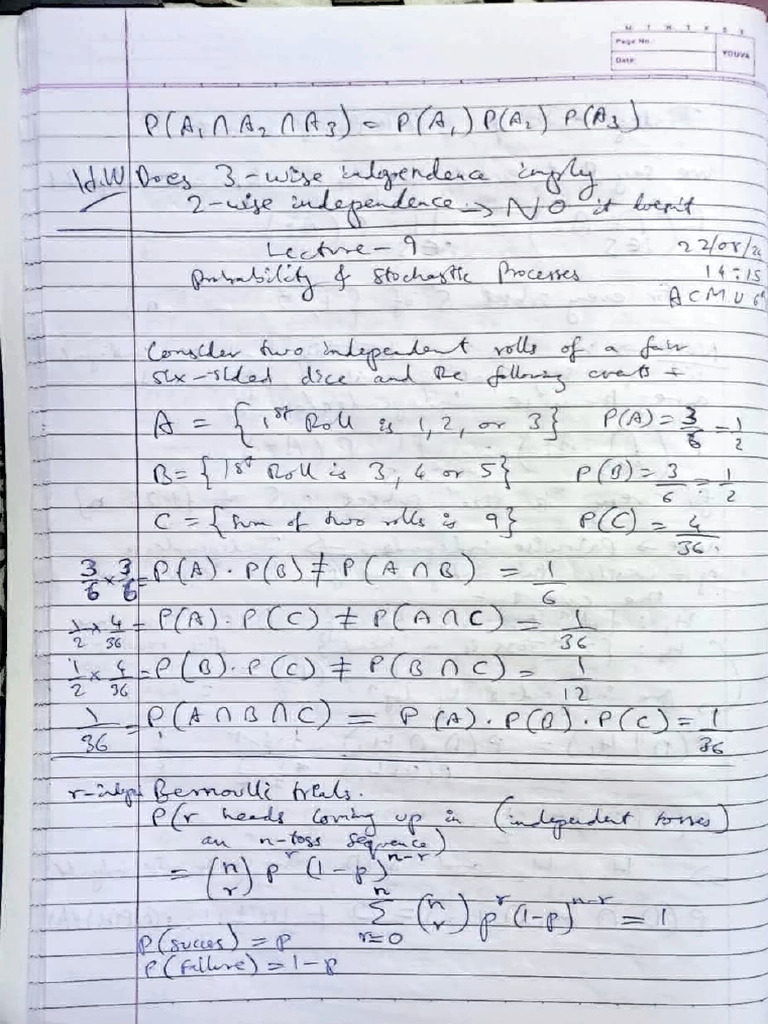 M T W T F S S
Page No.:
Date:
YOUVA
P(A₁ ∩ A₂ ∩ A₃) = P(A₁) P(A₂) P(A₃)
H.W Does 3-wise independence imply
2-wise independence → NO it doesn't
Lecture - 9 22/08/24
Probability & Stochastic Processes 14:15
Consider two independent rolls of a fair
six-sided dice and the following events
A = { 1st Roll is 1, 2, or 3} P(A) = 3/6 = 1/2
B = { 1st Roll is 3, 4 or 5} P(B) = 3/6 = 1/2
C = {Sum of two rolls is 9} P(C) = 4/36
3/6 × 3/6 = P(A) · P(B) ≠ P(A ∩ B) = 1/6
1/2 × 4/36 = P(A) · P(C) ≠ P(A ∩ C) = 1/36
1/2 × 4/36 = P(B) · P(C) ≠ P(B ∩ C) = 1/12
1/36 = P(A ∩ B ∩ C) = P(A) · P(B) · P(C) = 1/36
Bernoulli trials.
P(r heads coming up in (independent tosses)
an n-toss sequence)
= (n r) p^r (1-p)^{n-r}
∑_{r=0}^{n} (n r) p^r (1-p)^{n-r} = 1
P(succes) = p
P(failure) = 1-p